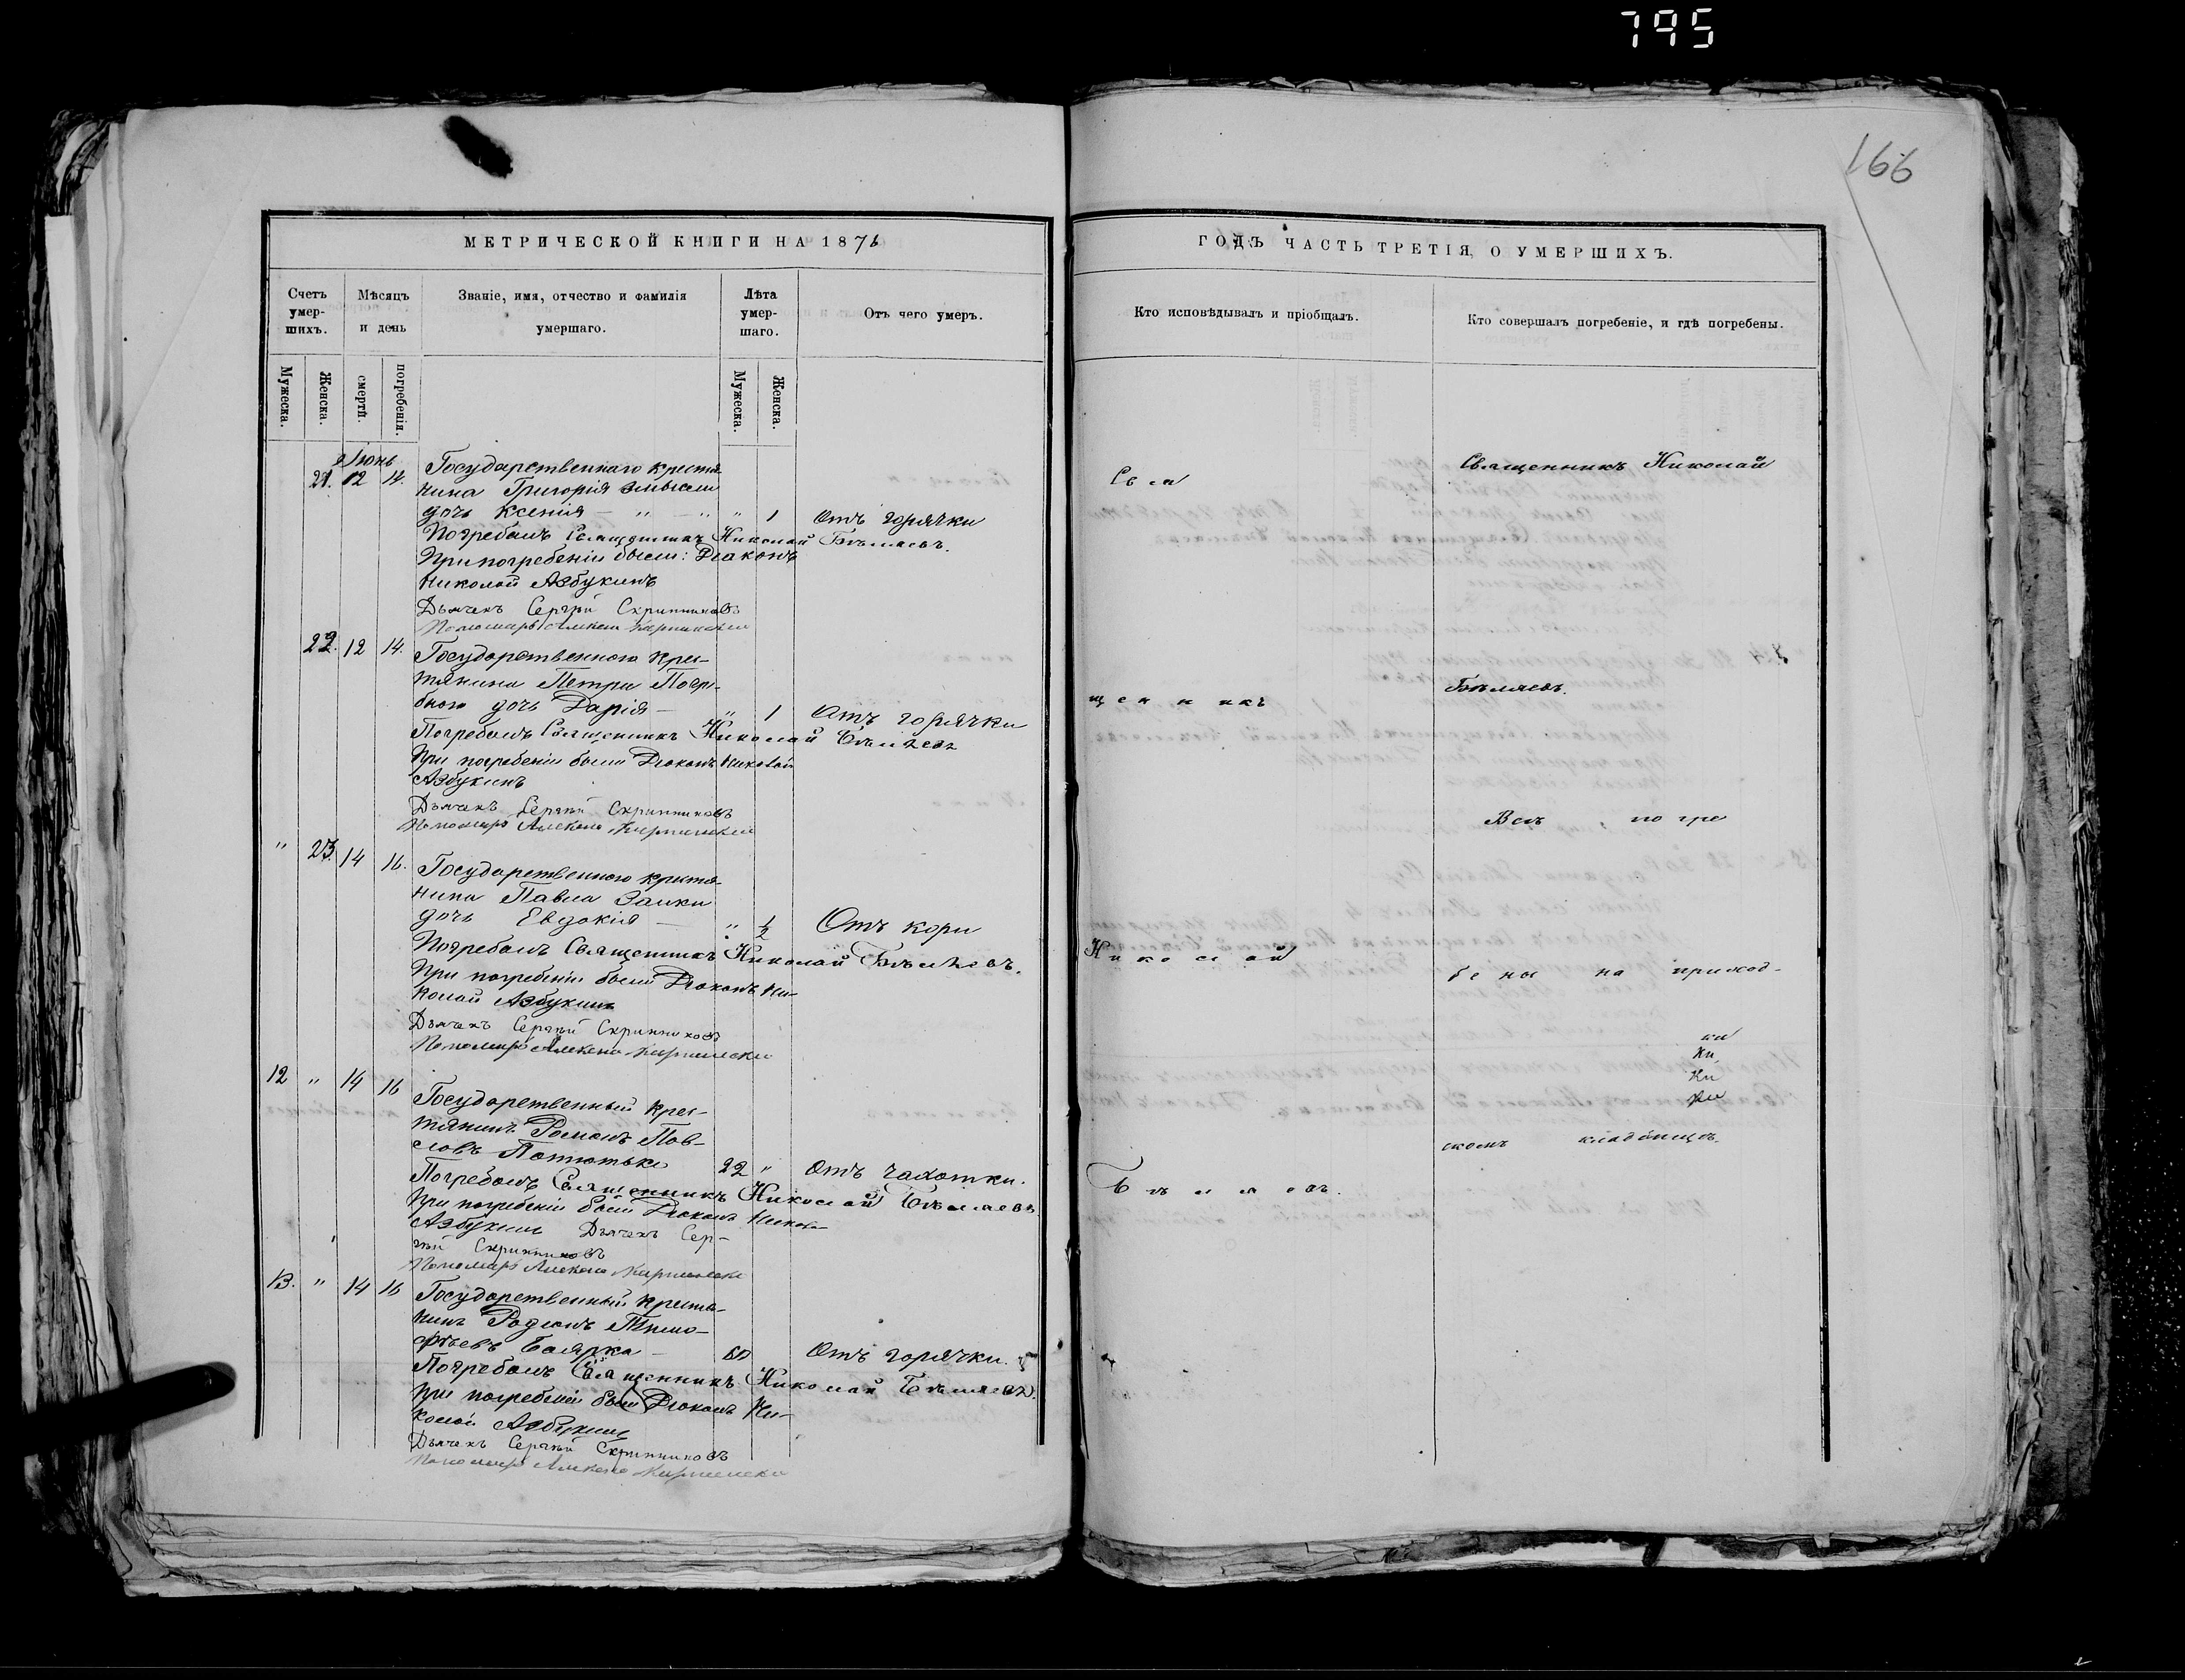 795
166
МЕТРИЧЕСКОЙ КНИГИ НА 1876
Счетъ умер-
шихъ.
Мѣсяцъ
и день
Званіе, имя, отчество и фамилія
умершаго.
Лѣта
умер-
шаго.
Отъ чего умеръ.
Мужеска.
Женска.
смерти.
погребенія.
Мужеска.
Женска.
Іюнь
21. 12 14. Государственнаго крестья-
нина Григорія
дочь Ксенія — " — " " 1 Отъ горячки
Погребалъ Священникъ Николай Бѣляевъ.
При погребеніи были: Діаконъ
Николай Азбукинъ
Дьячекъ Сергѣй Скрипниковъ
Пономарь Алексѣй
22. 12 14. Государственнаго крес-
тянина Петра Погрі-
бного дочь Дарія — " 1 Отъ горячки
Погребалъ Священникъ Николай Бѣляевъ
При погребеніи были Діаконъ Николай
Азбукинъ
Дьячекъ Сергѣй Скрипниковъ
Пономарь Алексѣй
" 23. 14 16. Государственнаго крестья-
нина Павла Заики
дочь Евдокія — " 1/2 Отъ кори
Погребалъ Священникъ Николай Бѣляевъ.
При погребеніи были Діаконъ Ни-
колай Азбукинъ
Дьячекъ Сергѣй Скрипниковъ
Пономарь Алексѣй
12 " 14 16 Государственный крес-
тянинъ Романъ Пав-
ловъ 22 " Отъ чахотки.
Погребалъ Священникъ Николай Бѣляевъ.
При погребеніи были Діаконъ Никола
Азбукинъ Дьячекъ Сер-
гѣй Скрипниковъ
Пономарь Алексѣй
13. " 14 16 Государственный крестья-
нинъ Родіонъ Тимо-
фѣевъ Боярка — 60 Отъ горячки.
Погребалъ Священникъ Николай Бѣляевъ.
При погребеніи были Діаконъ Ни-
колай Азбукинъ
Дьячекъ Сергѣй Скрипниковъ
Пономарь Алексѣй
ГОДЪ ЧАСТЬ ТРЕТІЯ, О УМЕРШИХЪ.
Кто исповѣдывалъ и пріобщалъ.
Кто совершалъ погребеніе, и гдѣ погребены.
Свя
щенникъ
Николай
Бѣляевъ.
Священникъ Николай
Бѣляевъ.
Всѣ погре
бены на приход-
скомъ кладбищѣ.